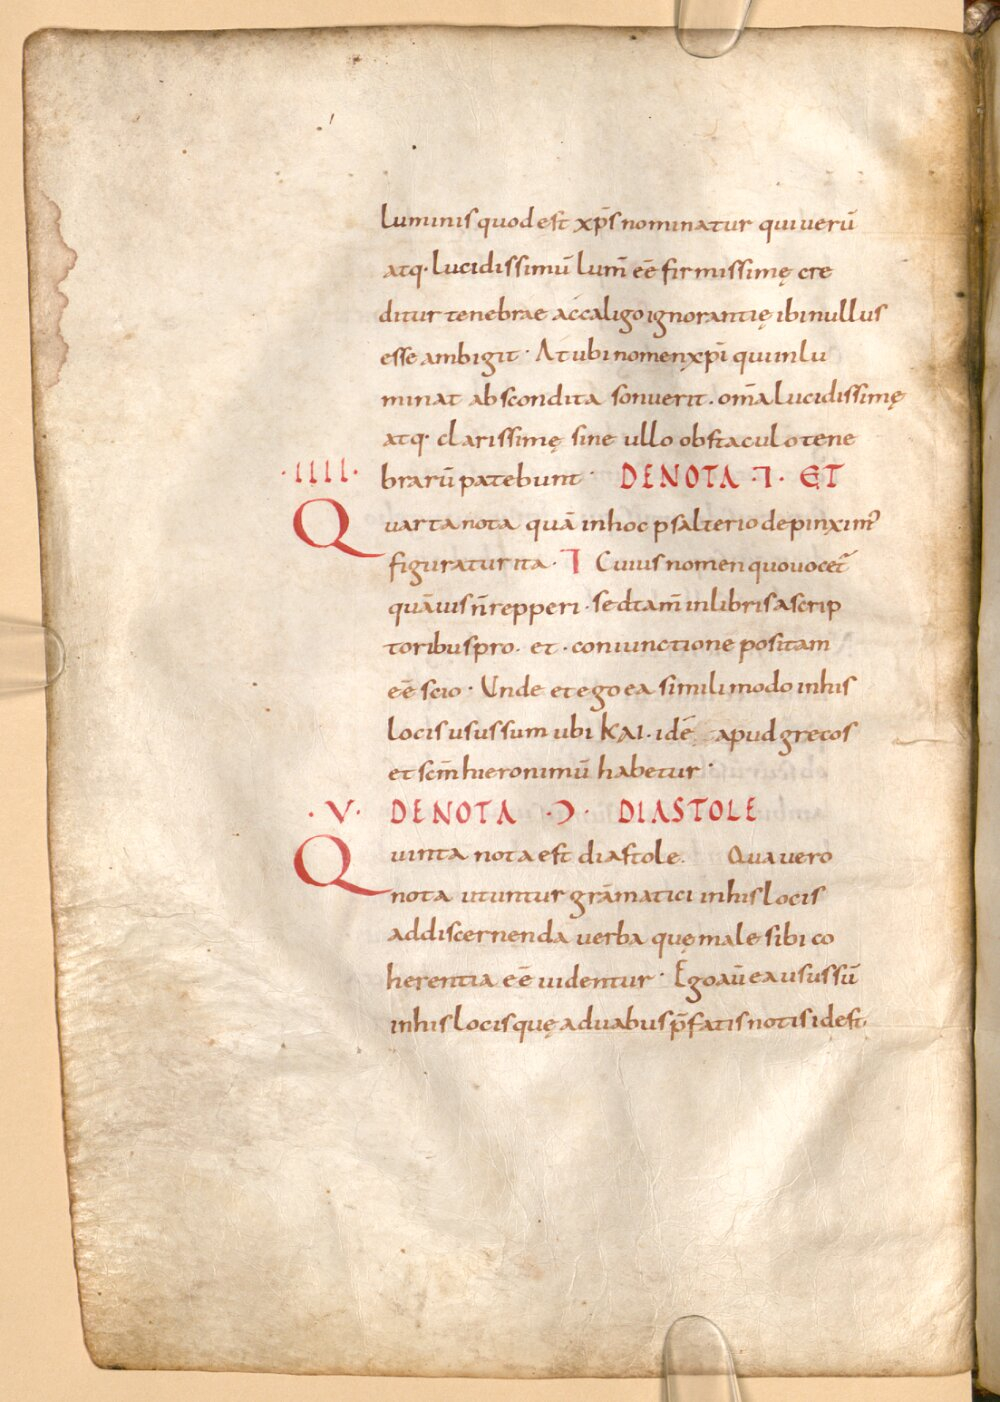 luminis quod est xp̄s nominatur qui uerū
atq· lucidissimū lum̄ eē firmissimę cre
ditur tenebrae ac caligo ignorantię ibi nullus
esse ambigit · At ubi nomen xp̄i qui inlu
minat abscondita sonuerit . om̄a lucidissimę
atq· clarissimę sine ullo obstaculo tene
·IIII· brarū patebunt · DE NOTA ·⁊· ET
Quarta nota quā in hoc psalterio depinxim᾽
figuratur ita · ⁊ Cuius nomen quo uocet᷑
quāuis n̄ repperi · sed tam̄ in libris a scrip
toribus pro · et · coniunctione positam
eē scio · Unde et ego ea simili modo in his
locis usus sum ubi KAI · idē apud grecos
et sc̄m hieronimū habetur ·
·V· DE NOTA ·Ɔ· DIASTOLE
Quinta nota est diastole . Qua uero
nota utuntur grāmatici in his locis
ad discernenda uerba quę male sibi co
herentia eē uidentur · Ego aū ea usus sū
in his locis quę a duabus p̄fatis notis id est ·